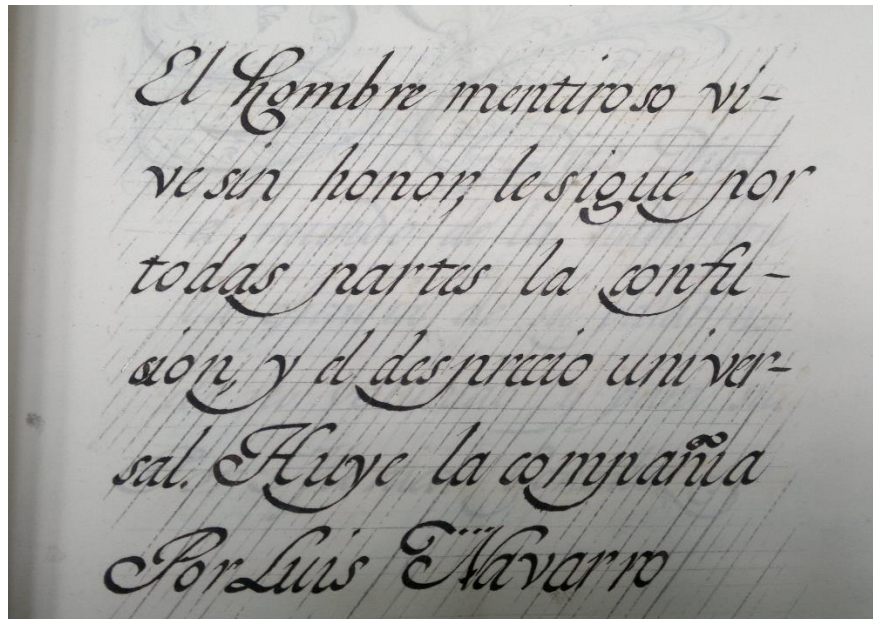 El hombre mentiroso vi-
ve sin honor, le sigue por
todas partes la confu-
sion, y el desprecio univer-
sal. Huye la compañia
Por Luis Navarro